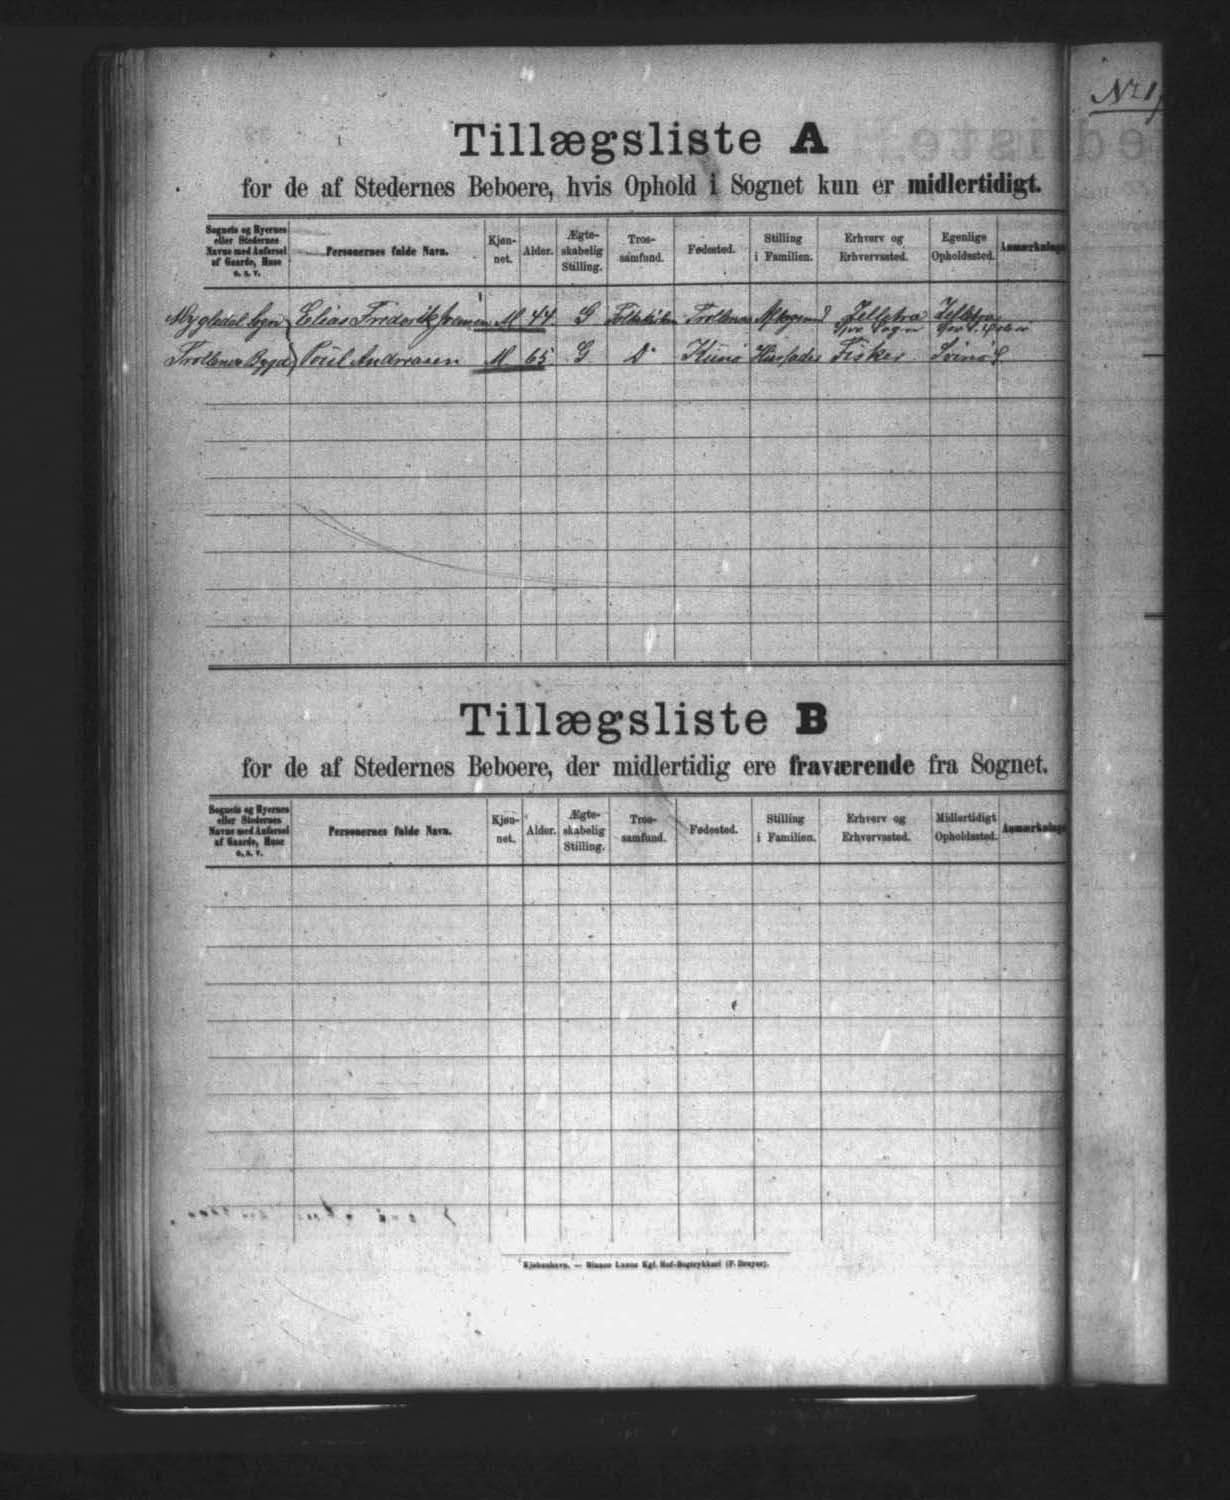 Nr 1
Tillægsliste A
for de af Stedernes Beboere, hvis Ophold i Sognet kun er midlertidigt.
Sognets og Byernes eller Stedernes Navne med Anførsel af Gaarde, Huse o. s. v. Personernes fulde Navn. Kjøn-net. Alder. Ægte-skabelig Stilling. Tros-samfund. Fødested. Stilling i Familien. Erhverv og Erhvervssted. Egenlige Opholdssted. Anmærkninge
Mygledal Sogn Elias Frederik M 44 G Folkekirken Trollenæs
Trollenæs Bygd Poul Andreasen M 65 G Do Kunø Husfader Fisker Svinø
Tillægsliste B
for de af Stedernes Beboere, der midlertidig ere fraværende fra Sognet.
Sognets og Byernes eller Stedernes Navne med Anførsel af Gaarde, Huse o. s. v. Personernes fulde Navn. Kjøn-net. Alder. Ægte-skabelig Stilling. Tros-samfund. Fødested. Stilling i Familien. Erhverv og Erhvervssted. Midlertidigt Opholdssted. Anmærkninge
Kjøbenhavn. — Bianco Lunos Kgl. Hof-Bogtrykkeri (F. Dreyer).